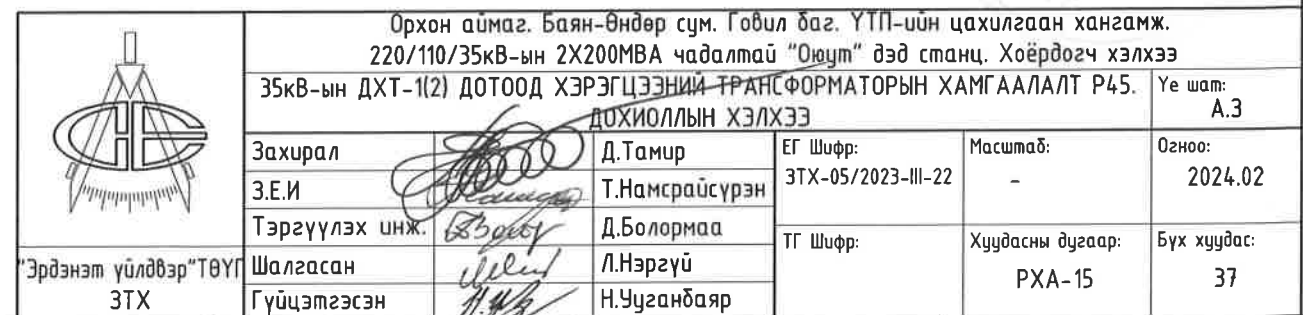 Орхон аймаг. Баян-Өндөр сум. Говил баг. ҮТП-ийн цахилгаан хангамж.
220/110/35кВ-ын 2Х200МВА чадалтай "Оюут" дэд станц. Хоёрдогч хэлхээ
35кВ-ын ДХТ-1(2) ДОТООД ХЭРЭГЦЭЭНИЙ ТРАНСФОРМАТОРЫН ХАМГААЛАЛТ P45.
ДОХИОЛЛЫН ХЭЛХЭЭ
Үе шат:
А.З
Захирал Д.Тамир
З.Е.И Т.Намсрайсүрэн
Тэргүүлэх инж. Д.Болормаа
Шалгасан Л.Нэргүй
Гүйцэтгэсэн Н.Ууганбаяр
ЕГ Шифр:
ЗТХ-05/2023-III-22
Масштаб:
-
Огноо:
2024.02
ТГ Шифр:
Хуудасны дугаар:
РХА-15
Бүх хуудас:
37
"Эрдэнэт үйлдвэр"ТӨҮГ
ЗТХ